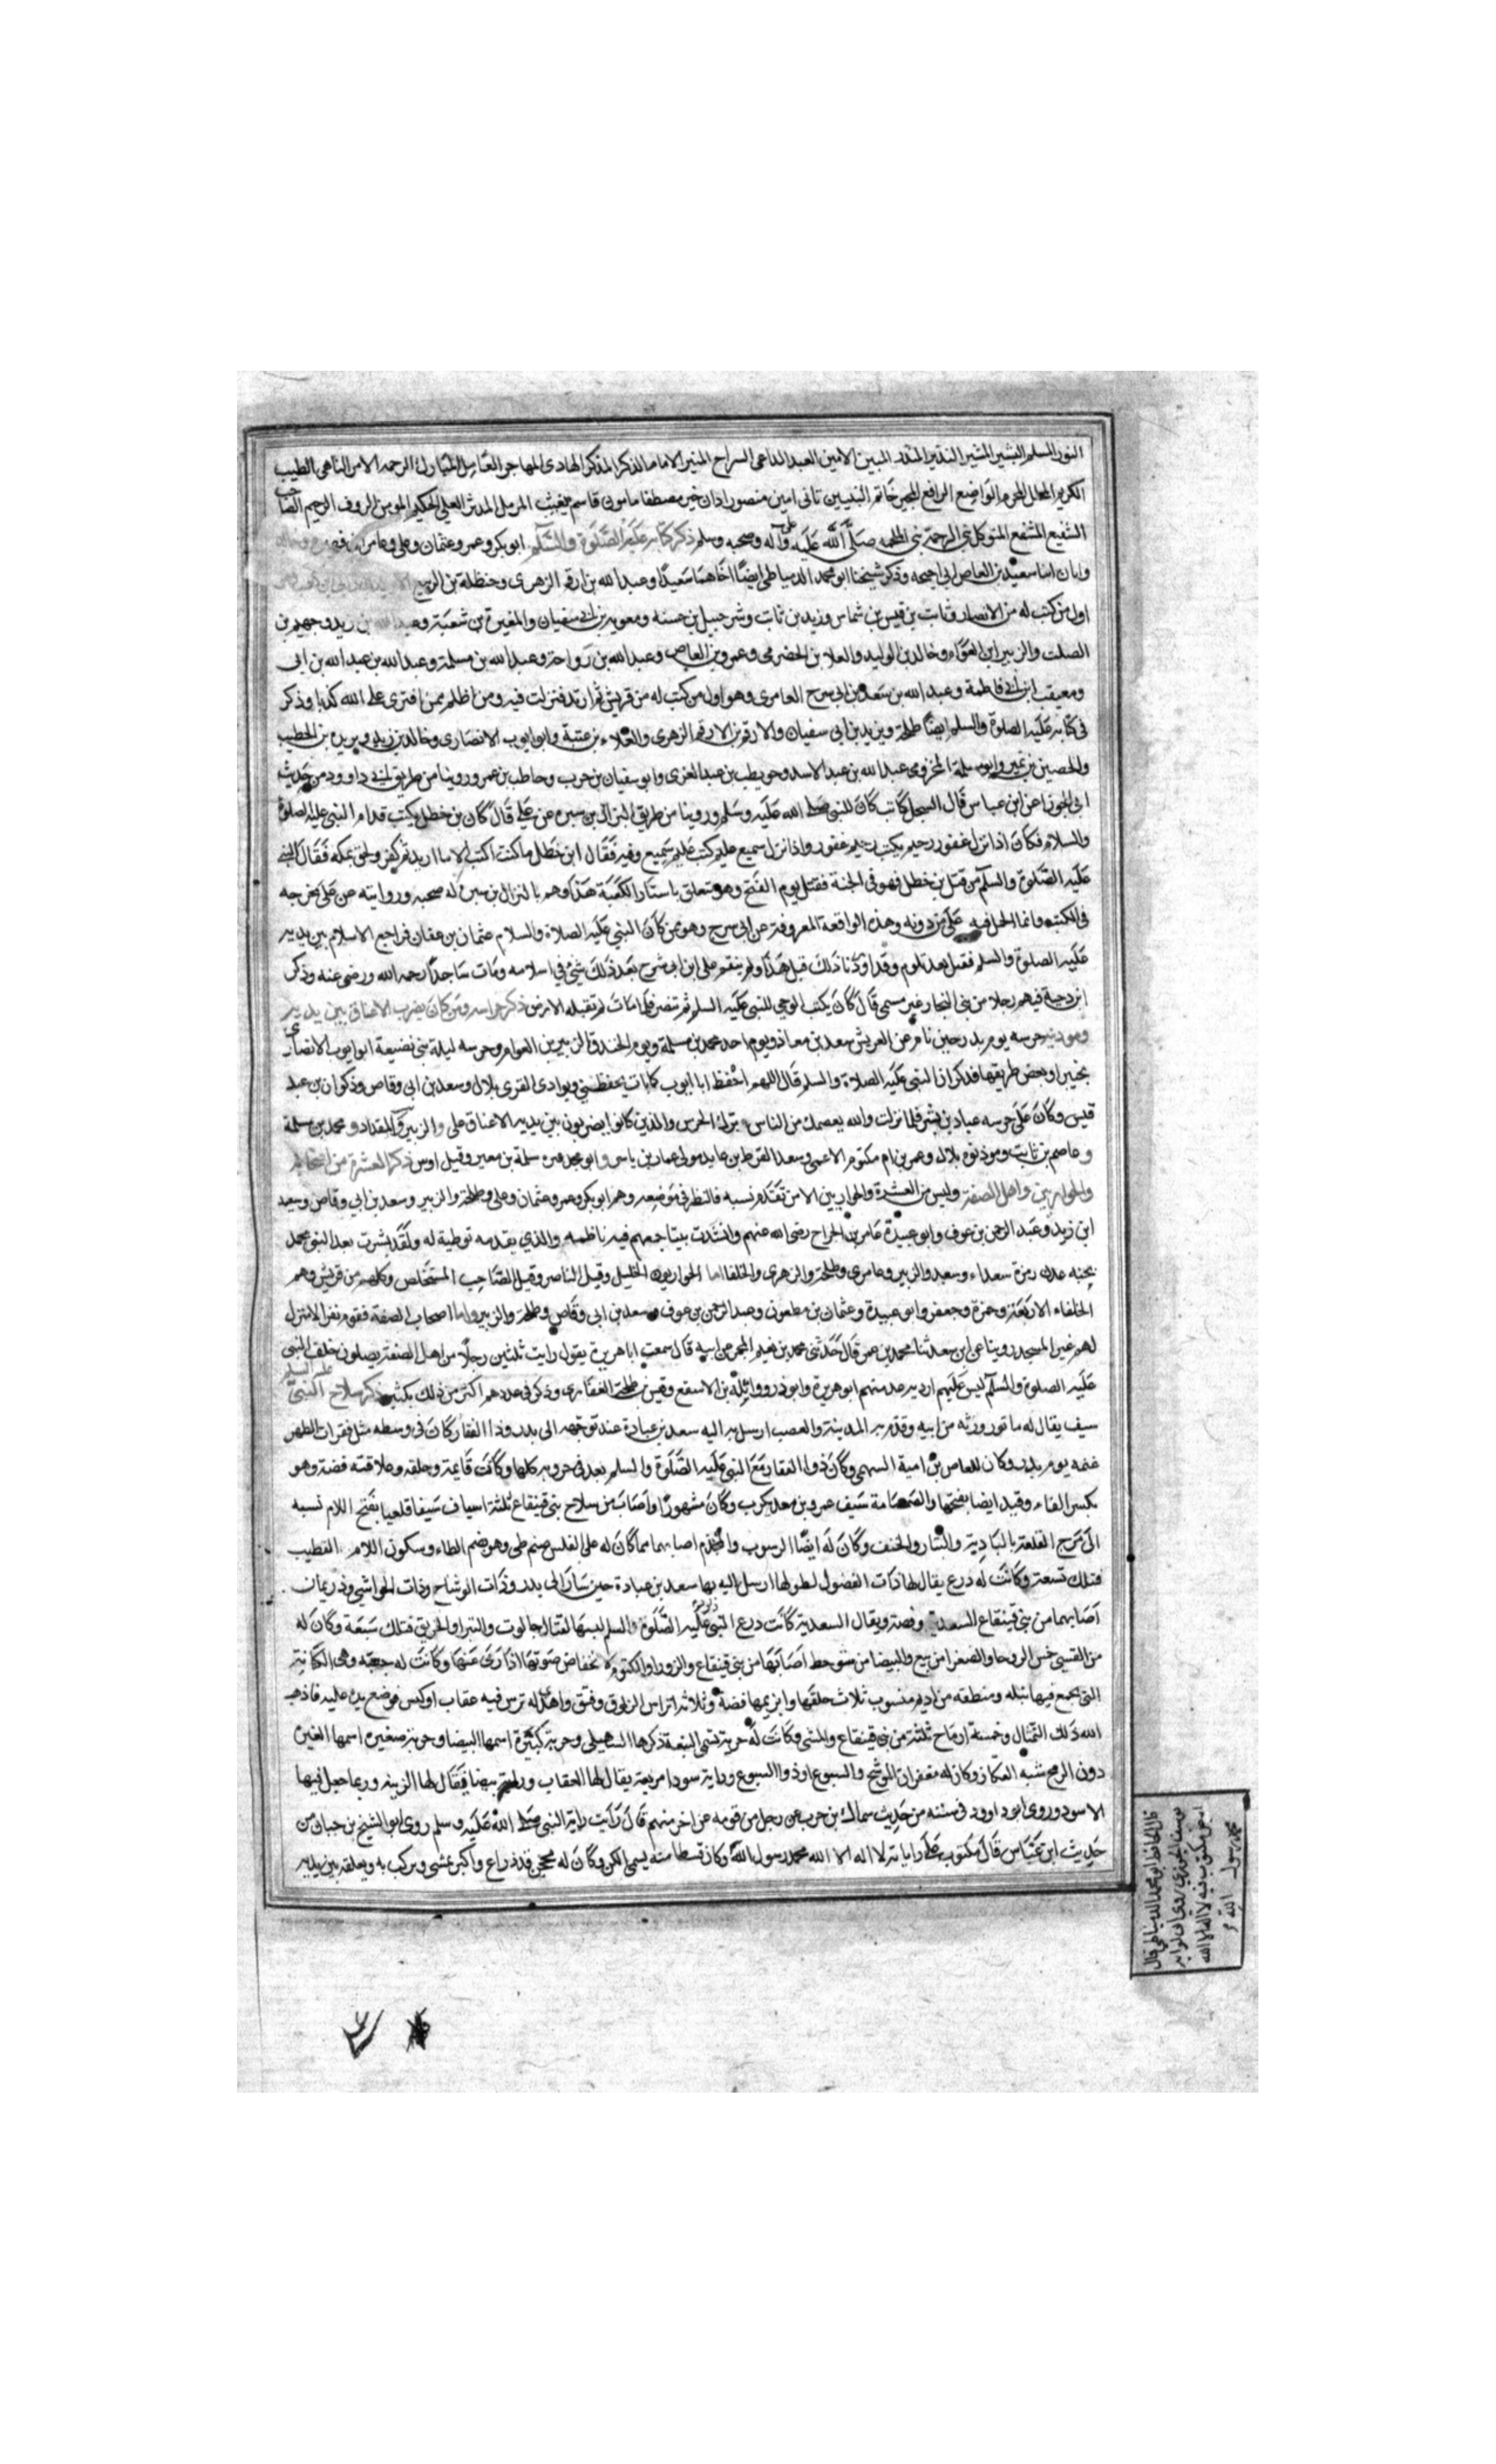 النور المسلم البشير المشير النذير المنذر المبين الامين العبد الداعى السراج المنير الامام الذكر المذكر الهادى المهاجر العامل المبارك الرحمه الامر الناهى الطيب
الكريم المحلل المحرم الواضع الرافع المجير خاتم النبيين ثانى اثنين منصور اذن خير مصطفا مامون قاسم نقيب المزمل المدثر العلي الحكيم المومن الروف الرحيم الصاحب
الشفيع المشفع المتوكل نبي الرحمة نبى الملحمه صلى الله عليه وعلى آله وصحبه وسلم ذكر كتابه عليه الصلوة والسلام ابو بكر وعمر وعثمان وعلى وعامر بن فهيرة وخالد
وابان ابنا سعيد بن العاص ابى احيحه وذكر شيخنا ابو محمد الدمياطى ايضًا اخاهما سعيدًا وعبد الله بن ارقم الزهرى وحنظلة بن الربيع
اول من كتب له من الانصار وثابت بن قيس بن شماس وزيد بن ثابت وشرحبيل بن حسنه ومعويه بن ابى سفيان والمغيرة بن شعبة وعبد الله بن زيد وجهيم بن
الصلت والزبير ابن العوام وخالد بن الوليد والعلا بن الحضرمى وعمرو بن العاص وعبد الله بن رواحة وعبد الله بن مسلمة وعبد الله بن عبد الله بن ابى
ومعيقب ابن ابى فاطمة وعبد الله بن سعد بن ابى سرح العامرى وهو اول من كتب له من قريش ثم ارتد فنزلت فيه ومن اظلم ممن افترى على الله كذبا وذكر
فى كتابه عليه الصلوة والسلم ايضًا طلحة ويزيد بن ابى سفيان والارقم بن الارقم الزهرى والعلاء بن عتبة وابو ايوب الانصارى وخالد بن زيد وبريده بن الحصيب
والحصين بن نمير وابو سلمة المخزومى عبد الله بن عبد الاسد وحويطب بن عبد العزى وابو سفيان بن حرب وحاطب بن عمرو وروينا من طريق ابى داود من حديث
ابى الجوزا عن ابن عباس قال السجل كاتب كان للنبى صلى الله عليه وسلم وروينا من طريق النزال بن سبره عن على قال كان بن خطل يكتب قدام النبى عليه الصلوة
والسلام فكان اذا نزل غفور رحيم يكتب رحيم غفور واذا نزل سميع عليم كتب عليم سميع وفيه فقال ابن خطل ما كنت اكتب الا ما اريد ثم كفر ولحق بمكه فقال النبى
عليه الصلوة والسلام من قتل بن خطل فهو فى الجنة فقتل يوم الفتح وهو متعلق باستار الكعبة هذا وهم بالنزال بن سبره له صحبه وروايته عن على مخرجه
فى الكتب وانما الحمل فيه على من دونه وهذه الواقعة المعروفة عن ابى سرح وهو ممن كان النبي عليه الصلاة والسلام عثمان بن عفان فراجع الاسلام بين يديه
عليه الصلوة والسلم فقبل بعد تلوم وقد اوردنا ذلك قبل هذا ولم ينقم على ابن ابى سرح بعد ذلك شئ فى اسلامه ومات ساجدًا رحمه الله ورضى عنه وذكر
ابن دحية فيهم رجلا من بنى النجار غير مسمى قال كان يكتب الوحى للنبى عليه السلم ثم تنصر فلما مات لم تقبله الارض ذكر حراسه ومن كان يضرب الاعناق بين يديه
وموذنيه حرسه يوم بدر حين نام فى العريش سعد بن معاذ ويوم احد محمد بن مسلمة ويوم الخندق الزبير بن العوام وحرسه ليلة بنى بصفية ابو ايوب الانصارى
بخيبر او بعض طريقها فذكر ان النبى عليه الصلاة والسلم قال اللهم احفظ ابا ايوب كما بات يحفظنى وبوادى القرى بلال وسعد بن ابى وقاص وذكوان بن عبد
قيس وكان على حرسه عباد بن بشر فلما نزلت والله يعصمك من الناس ترك الحرس والذين كانوا يضربون بين يديه الاعناق على والزبير والمقداد ومحمد بن مسلمة
وعاصم بن ثابت وموذنوه بلال وعمر بن ام مكتوم الاعمى وسعد القرظ بن عايد مولى عمار بن ياسر وابو محذوره سلمة بن معير وقيل اوس ذكر العشرة من اصحابه
والحواريين واهل الصفة وليس من العشرة والحواريين الا من تقدم نسبه فالنظر فى موضعه وهم ابو بكر وعمر وعثمان وعلى وطلحة والزبير وسعد بن ابي وقاص وسعيد
ابن زيد وعبد الرحمن بن عوف وابو عبيدة عامر بن الجراح رضى الله عنهم وانشدت بيتا جمعهم فيه ناظمه والذي يقدمه توطية له ولقد بشرت بعد النبى محمد
بجنه عدن زمرة سعداء وسعيد والزبير وعامر وطلحة والزهرى والخلفا اما الحواريون الخليل وقيل الناصر وقيل الصاحب المستخلص وكلهم من قريش وهم
الخلفاء الاربعة وحمزة وجعفر وابو عبيدة وعثمان بن مظعون وعبد الرحمن بن عوف وسعد بن ابى وقاص وطلحة والزبير واما اصحاب الصفة فقوم فقرا لا منزل
لهم غير المسجد روينا عن ابن سعد ثنا محمد بن عمر قال حدثنى محمد بن نعيم المجمر عن ابيه قال سمعت ابا هريرة يقول رايت ثلثين رجلًا من اهل الصفة يصلون خلف النبى
عليه الصلوة والسلام ليس عليهم ارديه عد منهم ابو هريرة وابو ذر وواثلة بن الاسقع وقيس بن طلحة الغفارى وذكر فى عددهم اكثر من ذلك بكثير ذكر سلاح النبى عليه السلم
سيف يقال له ماثور ورثه من ابيه وقدم به المدينة والعصب ارسل به اليه سعد بن عبادة عند توجهه الى بدر وذا الفقار كان فى وسطه مثل فقرات الظهر
غنمه يوم بدر وكان للعاص بن امية السهمى وكان ذوا الفقار مع النبى عليه الصلوة والسلم بعد فى حروبه كلها وكانت قايمته وحلقه وعلاقته فضة وهو
بكسر الفاء وقيد ايضا بفتحها والصمصامة سيف عمرو بن معد يكرب وكان مشهورًا واصاب من سلاح بنى قينقاع ثلثة اسياف سيفا قلعيا بفتح اللام نسبه
الى مرج القلعة بالبادية والبتار والحنف وكان له ايضًا الرسوب والمخذم اصابهما مما كان له على الفلس صنم طى وهو ضم الطاء وسكون اللام القضيب
فتلك تسعة وكانت له درع يقال لها ذات الفضول لطولها ارسل اليه بها سعد بن عبادة حين سار الى بدر وذات الوشاح وذات الحواشي ودريمان
اصابهما من بنى قينقاع السعدية وفضة ويقال السعدية كانت درع النبى داود عليه الصلوة والسلم لبسها لقتال جالوت والبترا والخرنق فتلك سبعة وكان له
من القسى خمس الروحا والصفرا من نبع والبيضا من شوحط اصابها من بنى قينقاع والزورا والكتوم لانخفاض صوتها اذا رمى عنها وكانت له جعبه وهى الكنانة
التى يجمع فيها نبله ومنطقه من اديم منسوب ثلاث حلقها وابزيمها فضة وثلاثة اتراس الزلوق وفتق واهدى له ترس فيه عقاب او كبس فوضع يده عليه فاذهب
الله ذلك التمثال وخمسة ارماح ثلثة من بنى قينقاع والمثنى وكانت له حربة تسمى النبعة ذكرها السهيلى وحربة كبيرة اسمها البيضا وحربة صغيره اسمها العنزه
دون الرمح شبه العكاز وكان له مغفران الموشح والسبوع او ذو السبوع وراية سودا مربعة يقال لها العقاب وراية بيضا يقال لها الزينه وربما جعل فيها
الاسود وروى ابو داود فى سننه من حديث سماك بن حرب عن رجل من قومه عن اخر منهم قال رايت راية النبى صلى الله عليه وسلم روى ابو الشيخ بن حبان من
حديث ابن عباس قال مكتوب على راياته لا اله الا الله محمد رسول الله وكان فسطاطه يسمى الكن وكان له محجن قدر ذراع واكبر يمشى ويركب به ويعلقه بين يديه
قال الحافظ ابو محمد الدمياطى قال
يوسف الجوزى روي ان لواه
ابيض مكتوب فيه لا اله الا الله
محمد رسول الله